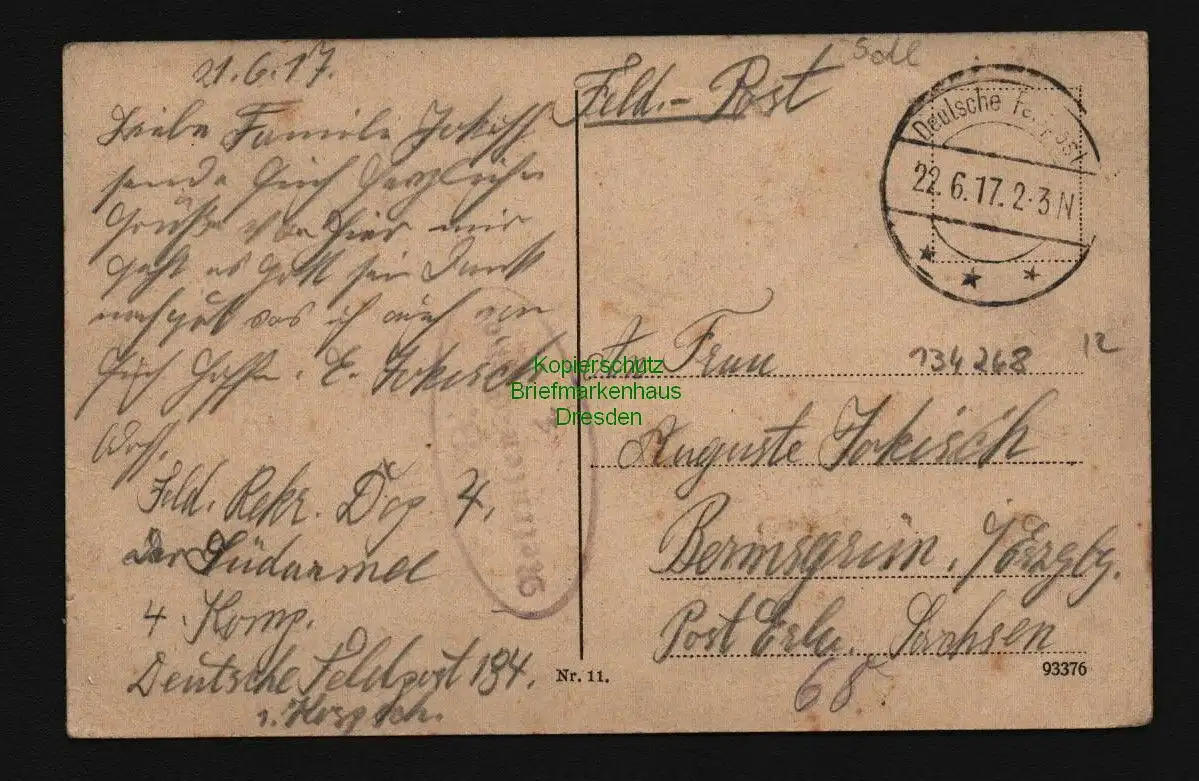 21.6.17.
Liebe Familie Jokisch
sende Euch herzliche
Grüße von hier mir
geht es Gott sei Dank
noch gut was ich auch von
Euch hoffe. E. Jokisch
Feld. Rekr. Dep. 4.
der Südarmel
4. Komp.
Deutsche Feldpost 184.
Feld.- Post
Sdl
Deutsche Feldpost
22.6.17.2-3N
An Frau
134268
12
Auguste Jokisch
Bermsgrün. i/Erzgbg.
Post Erla. Sachsen
68
Nr. 11.
93376
Kopierschutz
Briefmarkenhaus
Dresden